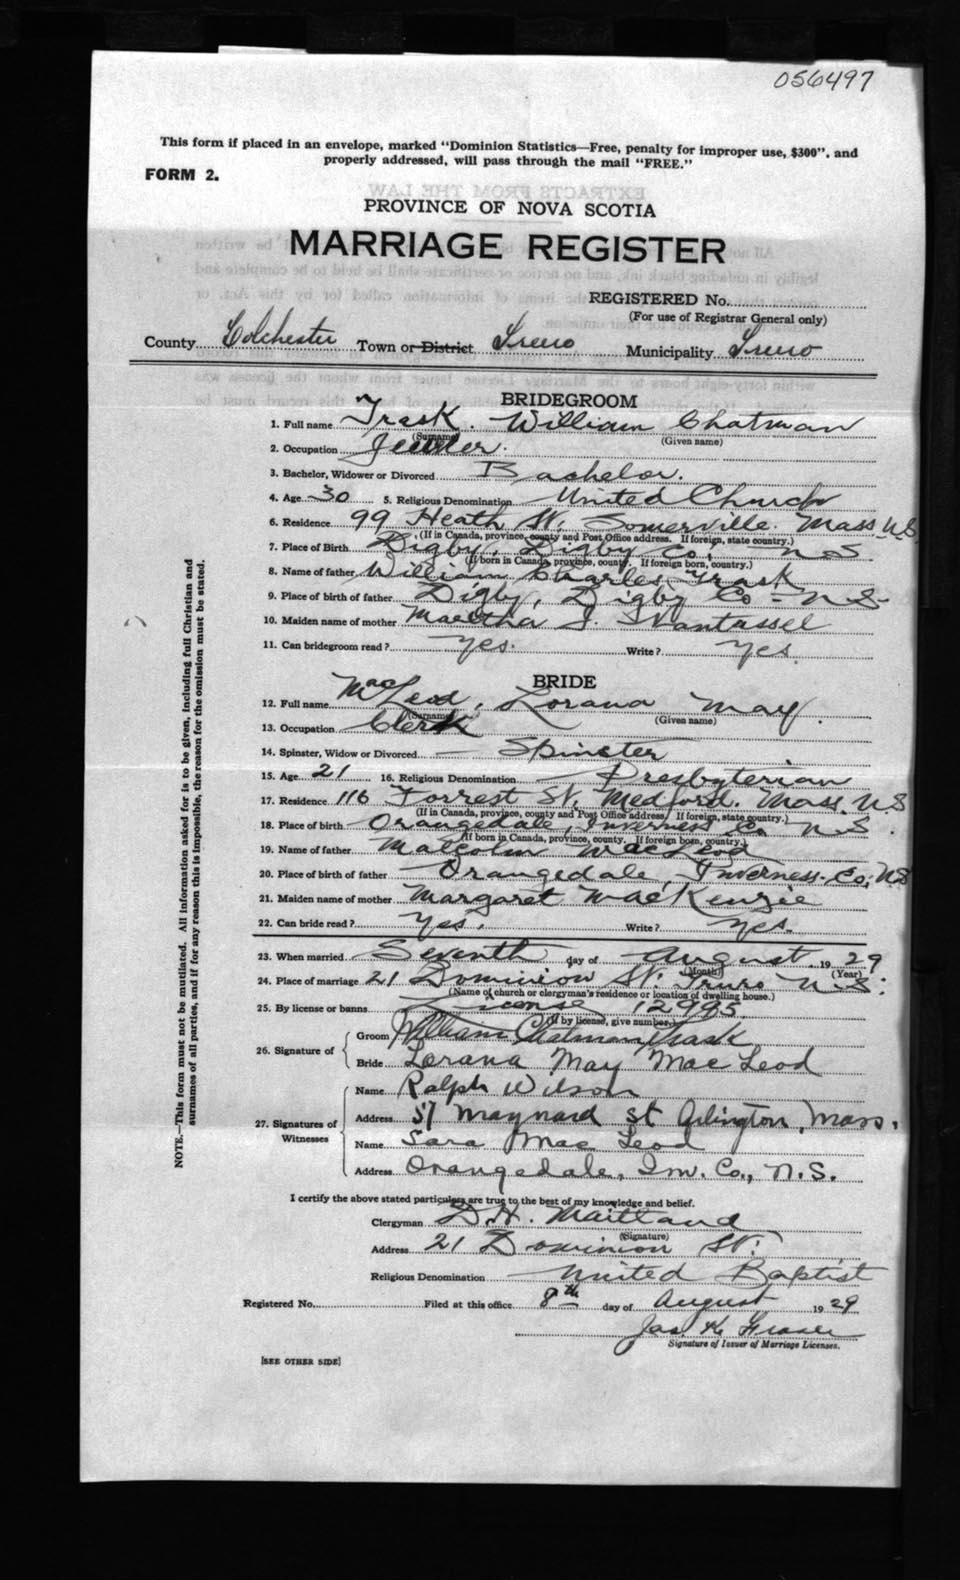 056497
This form if placed in an envelope, marked "Dominion Statistics—Free, penalty for improper use, $300", and
properly addressed, will pass through the mail "FREE."
FORM 2.
PROVINCE OF NOVA SCOTIA
MARRIAGE REGISTER
REGISTERED No.
(For use of Registrar General only)
County Colchester Town or District Truro Municipality Truro
BRIDEGROOM
1. Full name Trask. William Chatman
(Surname) (Given name)
2. Occupation Jeweler.
3. Bachelor, Widower or Divorced Bachelor.
4. Age 30 5. Religious Denomination United Church
6. Residence 99 Heath St. Somerville. Mass U.S
(If in Canada, province, county and Post Office address. If foreign, state country.)
7. Place of Birth Digby, Digby Co. N.S
(If born in Canada, province, county. If foreign born, country.)
8. Name of father William Charles Trask
9. Place of birth of father Digby, Digby Co - N.S.
10. Maiden name of mother Maretha J. Vantassel
11. Can bridegroom read? Yes. Write? Yes.
BRIDE
12. Full name MacLeod, Lorana May.
(Surname) (Given name)
13. Occupation Clerk
14. Spinster, Widow or Divorced Spinster
15. Age 21 16. Religious Denomination Presbyterian
17. Residence 116 Forrest St. Medford. Mass U.S
(If in Canada, province, county and Post Office address. If foreign, state country.)
18. Place of birth Orangedale, Inverness Co N.S.
(If born in Canada, province, county. If foreign born, country.)
19. Name of father Malcolm MacLeod
20. Place of birth of father Orangedale, Inverness. Co, N.S
21. Maiden name of mother Margaret MacKenzie
22. Can bride read? Yes. Write? Yes.
23. When married Seventh day of August 1929
(Month) (Year)
24. Place of marriage 21 Dominion St. Truro N.S.
(Name of church or clergyman's residence or location of dwelling house.)
25. By license or banns License 12995.
(If by license, give number.)
26. Signature of
Groom William Chatman Trask
Bride Lorana May MacLeod
27. Signatures of Witnesses
Name Ralph Wilson
Address 57 Maynard St Arlington, Mass.
Name Sara MacLeod
Address Orangedale, Inv. Co., N.S.
I certify the above stated particulars are true to the best of my knowledge and belief.
Clergyman D.H. Maitland
(Signature)
Address 21 Dominion St.
Religious Denomination United Baptist
Registered No. Filed at this office 8th day of August 1929
Jas. K. Fraser
Signature of Issuer of Marriage Licenses.
[SEE OTHER SIDE]
NOTE.—This form must not be mutilated. All information asked for is to be given, including full Christian and
surnames of all parties, and if for any reason this is impossible, the reason for the omission must be stated.